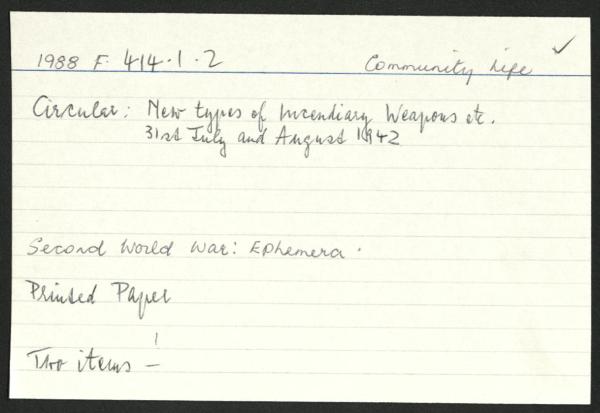 1988 F. 414.1.2 Community Life ✓
Circular: New types of Incendiary Weapons etc.
31st July and August 1942
Second World War: Ephemera.
Printed Paper
Two items –